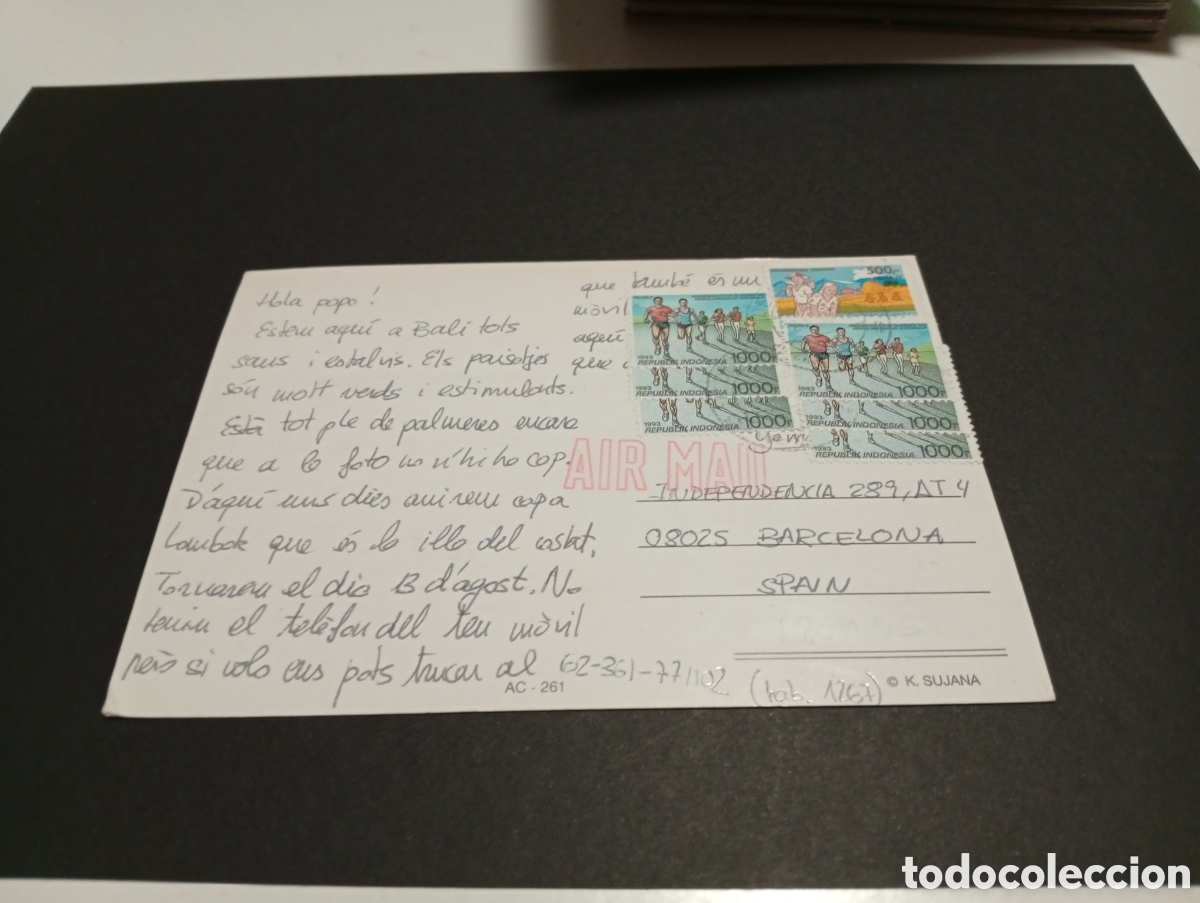 Hola papa!
Estem aquí a Bali tots
sans i estalvis. Els paisatjes
són molt verds i estimulants.
Està tot ple de palmeres encara
que a la foto no n'hi ha cap.
D'aquí uns dies anirem cap a
Lombok que és la illa del costat.
Tornarem el dia 13 d'agost. No
tenim el telèfon del teu mòvil
però si vols ens pots trucar al 62-361-771102 (hab. 1267)
que també és un
mòvil
aquí
que
500
1993 REPUBLIK INDONESIA 1000
1993 REPUBLIK INDONESIA 1000
1993 REPUBLIK INDONESIA 1000
1993 REPUBLIK INDONESIA 1000
1993 REPUBLIK INDONESIA 1000
1993 REPUBLIK INDONESIA 1000
AIR MAIL
INDEPENDENCIA 289, AT 4
08025 BARCELONA
SPAIN
AC - 261
© K. SUJANA
todocoleccion